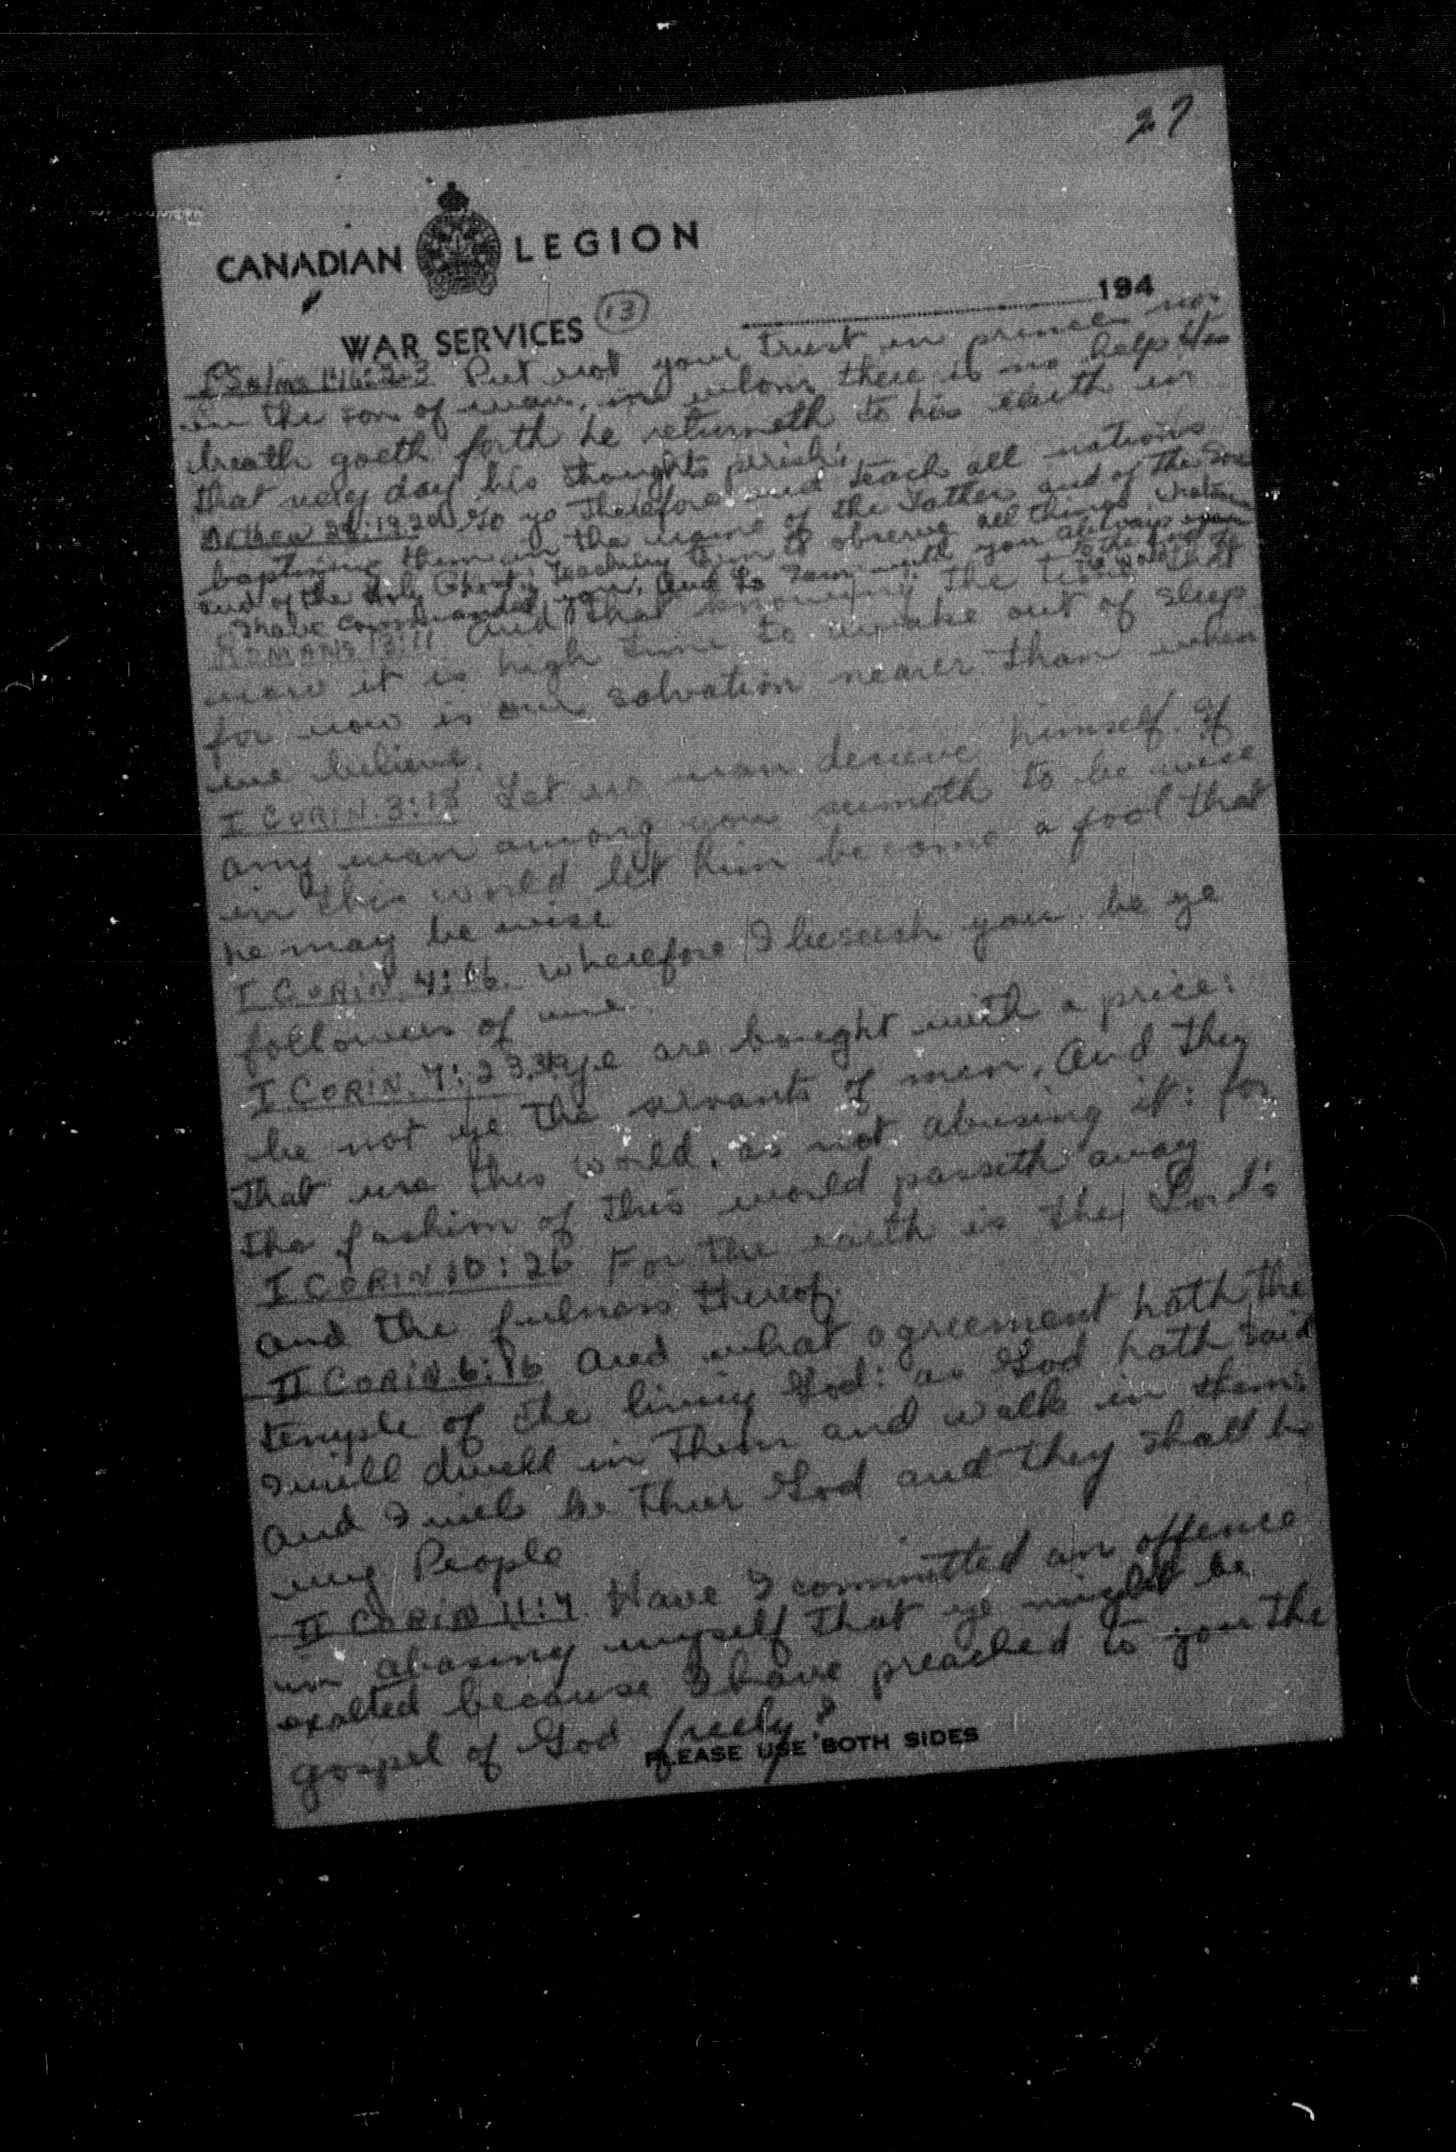 27
CANADIAN LEGION
194
WAR SERVICES 13
Psalms 146:2-3 Put not your trust in princes nor
in the son of man, in whom there is no help His
breath goeth forth he returneth to his earth in
that very day his thoughts perish.
28:19.20 Go ye therefore and teach all nations
baptizing them in the name of the Father and of the Son
and of the Holy Ghost; Teaching them to observe all things whatsoever
I have commanded you: and lo I am with you always
ROMANS 13:11 and that knowing the time that
now it is high time to awake out of sleep
for now is our salvation nearer than when
we believe.
I CORIN. 3:18 Let no man deceive himself. If
any man among you seemeth to be wise
in this world let him become a fool that
he may be wise
I CORIN. 4:16. Wherefore I beseech you be ye
followers of me.
I CORIN. 7:23 ye are bought with a price:
be not ye the servants of men. And they
that use this world, as not abusing it: for
the fashion of this world passeth away
I CORIN 10:26 For the earth is the Lord's
and the fulness thereof.
II CORIN. 6:16 and what agreement hath the
temple of the living God: as God hath said
I will dwell in them and walk in them:
and I will be their God and they shall be
my People
II CORIN 11:7 Have I committed an offence
in abasing myself that ye might be
exalted because I have preached to you the
gospel of God freely?
PLEASE USE BOTH SIDES